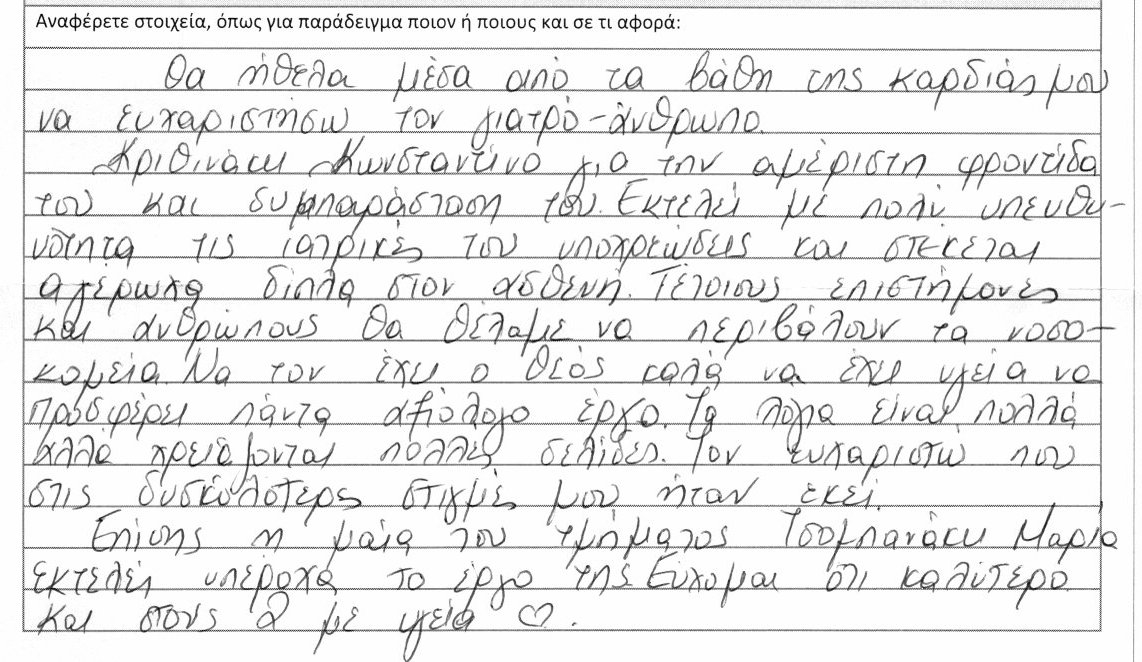 Αναφέρετε στοιχεία, όπως για παράδειγμα ποιον ή ποιους και σε τι αφορά:
Θα ήθελα μέσα από τα βάθη της καρδιάς μου
να ευχαριστήσω τον γιατρό-άνθρωπο.
Κριθινάκη Κωνσταντίνο για την αμέριστη φροντίδα
του και συμπαράσταση του. Εκτελεί με πολύ υπευθυ-
νότητα τις ιατρικές του υποχρεώσεις και στέκεται
αγέρωχα δίπλα στον ασθενή. Τέτοιους επιστήμονες
και ανθρώπους θα θέλαμε να περιβάλουν τα νοσο-
κομεία. Να τον έχει ο Θεός καλά να έχει υγεία να
προσφέρει πάντα αξιόλογο έργο. Τα λόγια είναι πολλά
αλλά χρειάζονται πολλές σελίδες. Τον ευχαριστώ που
στις δυσκολότερες στιγμές μου ήταν εκεί.
Επίσης η μαία του τμήματος Τσομπανάκη Μαρία
εκτελεί υπέροχα το έργο της. Εύχομαι ότι καλύτερο
και στους 2 με υγεία ♡.